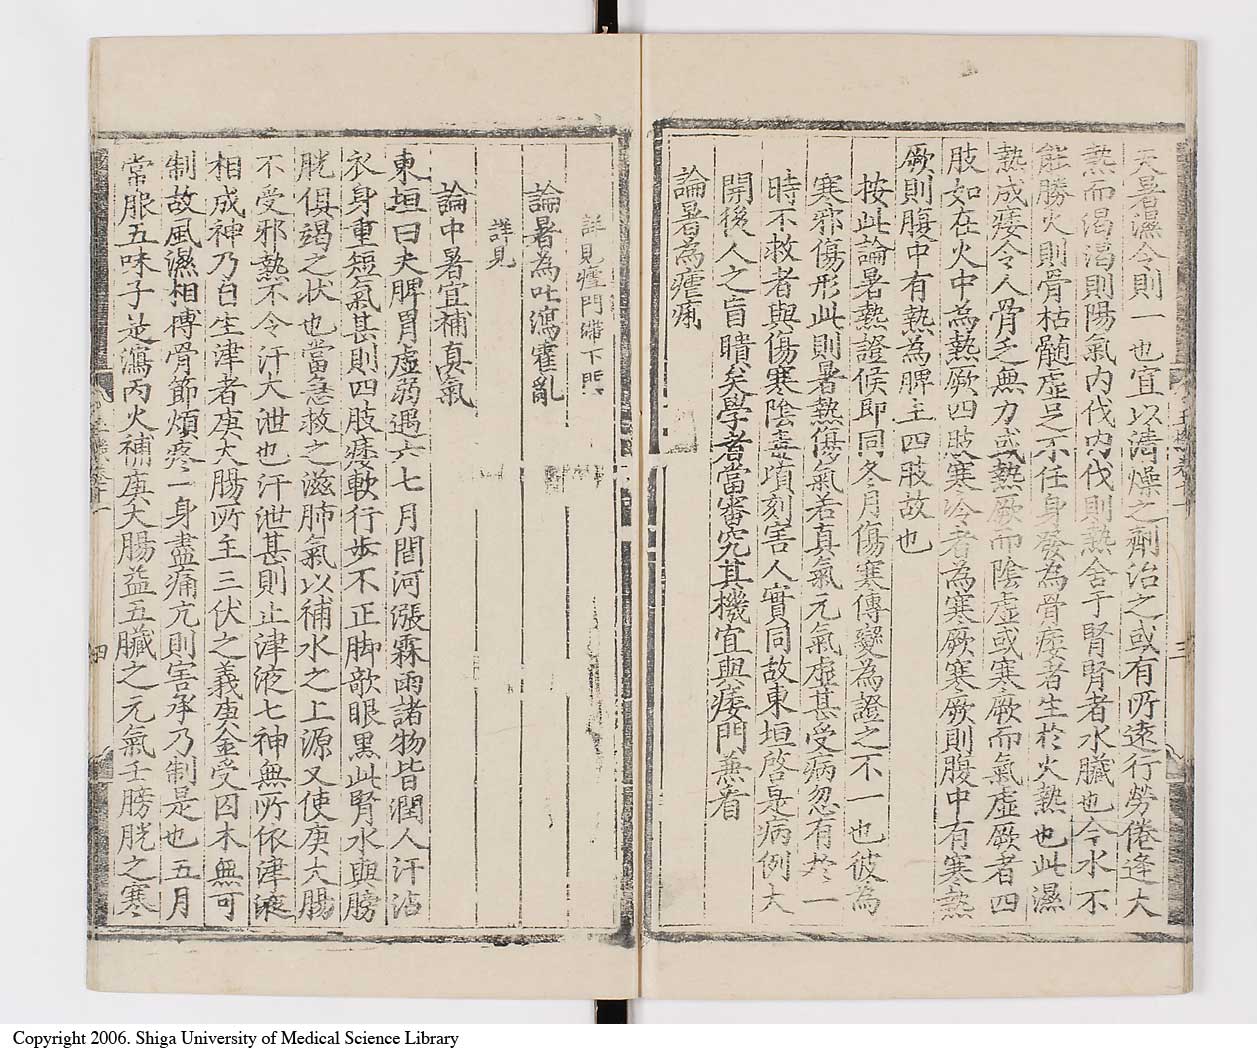 天暑濕令則一也宜以清燥之劑治之或有所遠行勞倦逢大
熱而渴渴則陽氣內伐內伐則熱舍于腎腎者水臟也今水不
能勝火則骨枯髓虛足不任身發為骨痿者生於火熱也此濕
熱成痿令人骨乏無力或熱厥而陰虛或寒厥而氣虛厥者四
肢如在火中為熱厥四肢寒冷者為寒厥寒厥則腹中有寒熱
厥則腹中有熱為脾主四肢故也
按此論暑熱證候即同冬月傷寒傳變為證之不一也彼為
寒邪傷形此則暑熱傷氣若真氣元氣虛甚受病忽有於一
時不救者與傷寒陰毒頃刻害人實同故東垣啓是病例大
開後人之盲瞶矣學者當審究其機宜與痿門兼看
論暑為瘧痢
詳見瘧門滯下門
論暑為吐瀉霍亂
詳見
論中暑宜補真氣
東垣曰夫脾胃虛弱遇六七月間河漲霖雨諸物皆潤人汗沾
衣身重短氣甚則四肢痿軟行步不正脚欹眼黑此腎水與膀
胱俱竭之状也當急救之滋肺氣以補水之上源又使庚大腸
不受邪熱不令汗大泄也汗泄甚則止津液七神無所依津液
相成神乃自生津者庚大腸所主三伏之義庚金受囚木無可
制故風濕相搏骨節煩疼一身盡痛亢則害承乃制是也五月
常服五味子是瀉丙火補庚大腸益五臟之元氣壬膀胱之寒
三
四
Copyright 2006. Shiga University of Medical Science Library